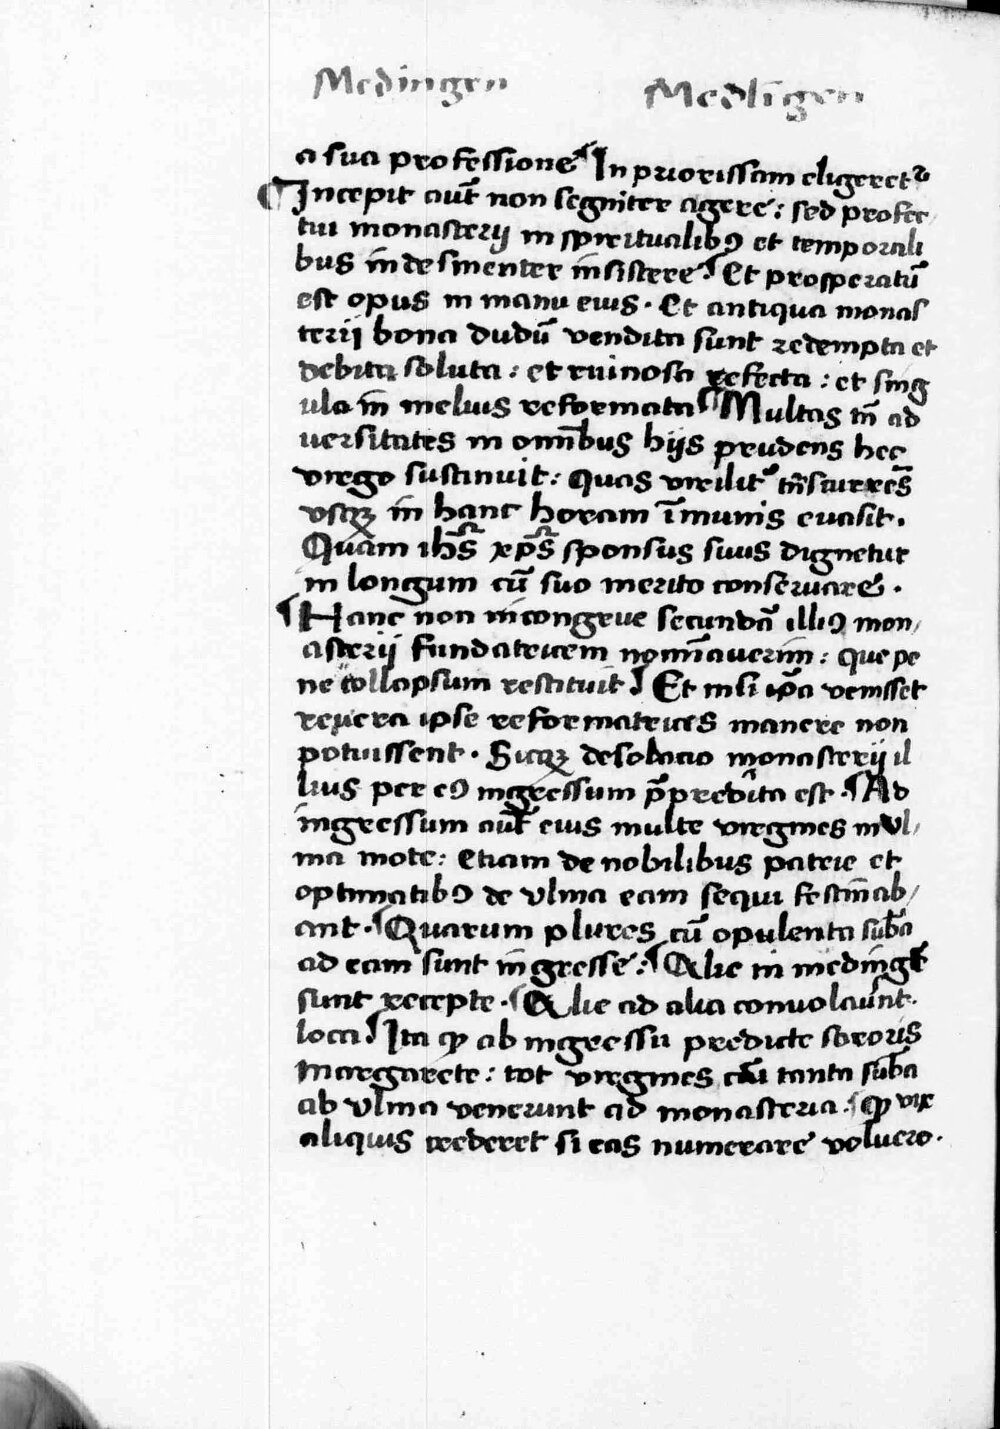 Medingen Medlīgen
a sua professione ¶ In priorissam eligeretᷣ
¶ Incepit aut̄ non segniter agere: sed profec/
tui monasterij in spiritualibꝰ et temporali
bus indesinenter insistere ¶ Et prosperatū
est opus in manu eius. Et antiqua monas
terij bona dudū vendita sunt redempta et
debita soluta: et ruinosa refecta: et sing
ula in melius reformata ¶ Multas tn̄ ad
uersitates in omnibus hijs prudens hec
virgo sustinuit: Quas virilit᾽
vsqꝫ in hanc horam īmunis euasit.
Quam ihs̄ xp̄s sponsus suus dignetur
in longum cū suo merito conseruare.
¶ Hanc non incongrue secundā illiꝰ mon/
asterij fundatricem nomīauerim: que pe
ne collapsum restituit ¶ Et nisi ip̄a venisset
reuera ipse reformatrices manere non
potuissent. Sicqꝫ desolacio monasterij il
lius per eꝰ ingressum p̄predita est. ¶ Ad
ingressum aut̄ eius multe virgines in vl/
ma mote: etiam de nobilibus patrie et
optimatibꝰ de vlma eam sequi festinab/
ant. ¶ Quarum plures cū opulenta sub̄a
ad eam sunt ingresse: ¶ Alie in meding̅
sunt recepte. ¶ Alie ad alia conuolaūnt
loca ¶ Ita ꝙ ab ingressu predicte sororis
margarete: tot virgines cū tanta sub̄a
ab vlma venerunt ad monasteria. ¶ ꝙ vix
aliquis crederet si eas numerare voluero.